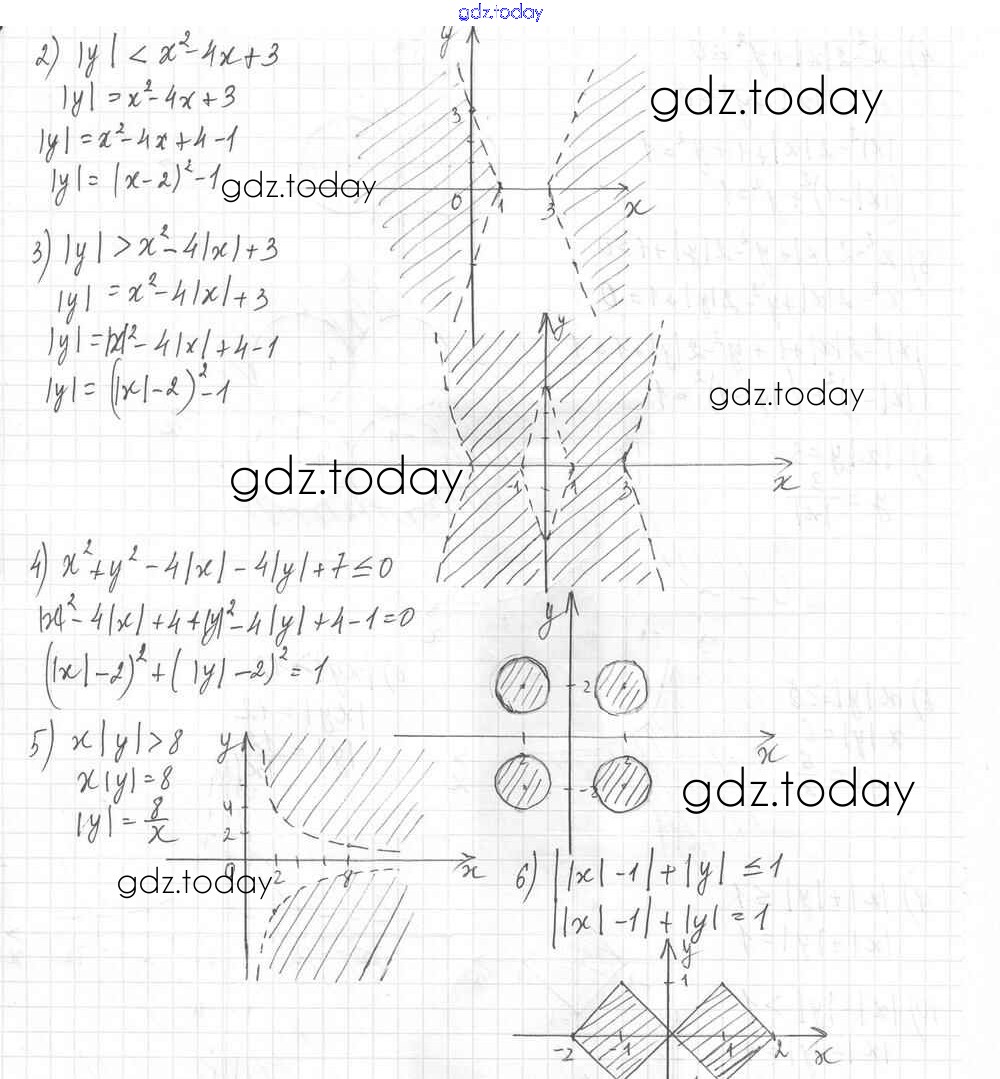 gdz.today
2) |y| < x² - 4x + 3
|y| = x² - 4x + 3
|y| = x² - 4x + 4 - 1
|y| = (x - 2)² - 1
gdz.today
gdz.today
y
3
0 1 3 x
3) |y| > x² - 4|x| + 3
|y| = x² - 4|x| + 3
|y| = |x|² - 4|x| + 4 - 1
|y| = (|x| - 2)² - 1
y
gdz.today
gdz.today
-1 1 3 x
4) x² + y² - 4|x| - 4|y| + 7 ≤ 0
|x|² - 4|x| + 4 + |y|² - 4|y| + 4 - 1 = 0
(|x| - 2)² + (|y| - 2)² = 1
y
2
x
gdz.today
5) x|y| > 8
x|y| = 8
|y| = 8/x
y
4
2
0 2 8 x
gdz.today
6) ||x| - 1| + |y| ≤ 1
||x| - 1| + |y| = 1
y
1
-2 -1 1 2 x